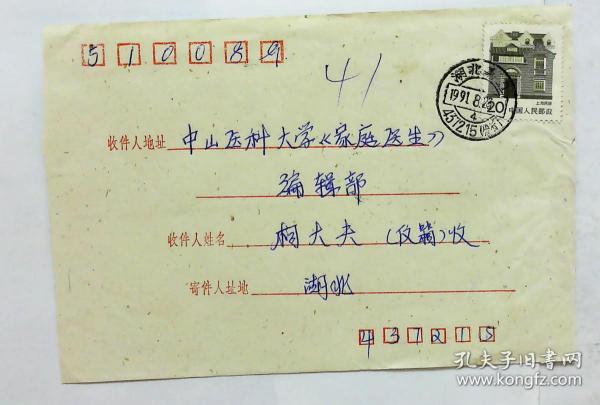 510089
41
湖北
1991.8.2
20
4
437215
20
上海民居
中国人民邮政
收件人地址 中山医科大学《家庭医生》
编辑部
收件人姓名 柯大夫(仪器)收
寄件人址地 湖北
437215
孔夫子旧书网
www.kongfz.com